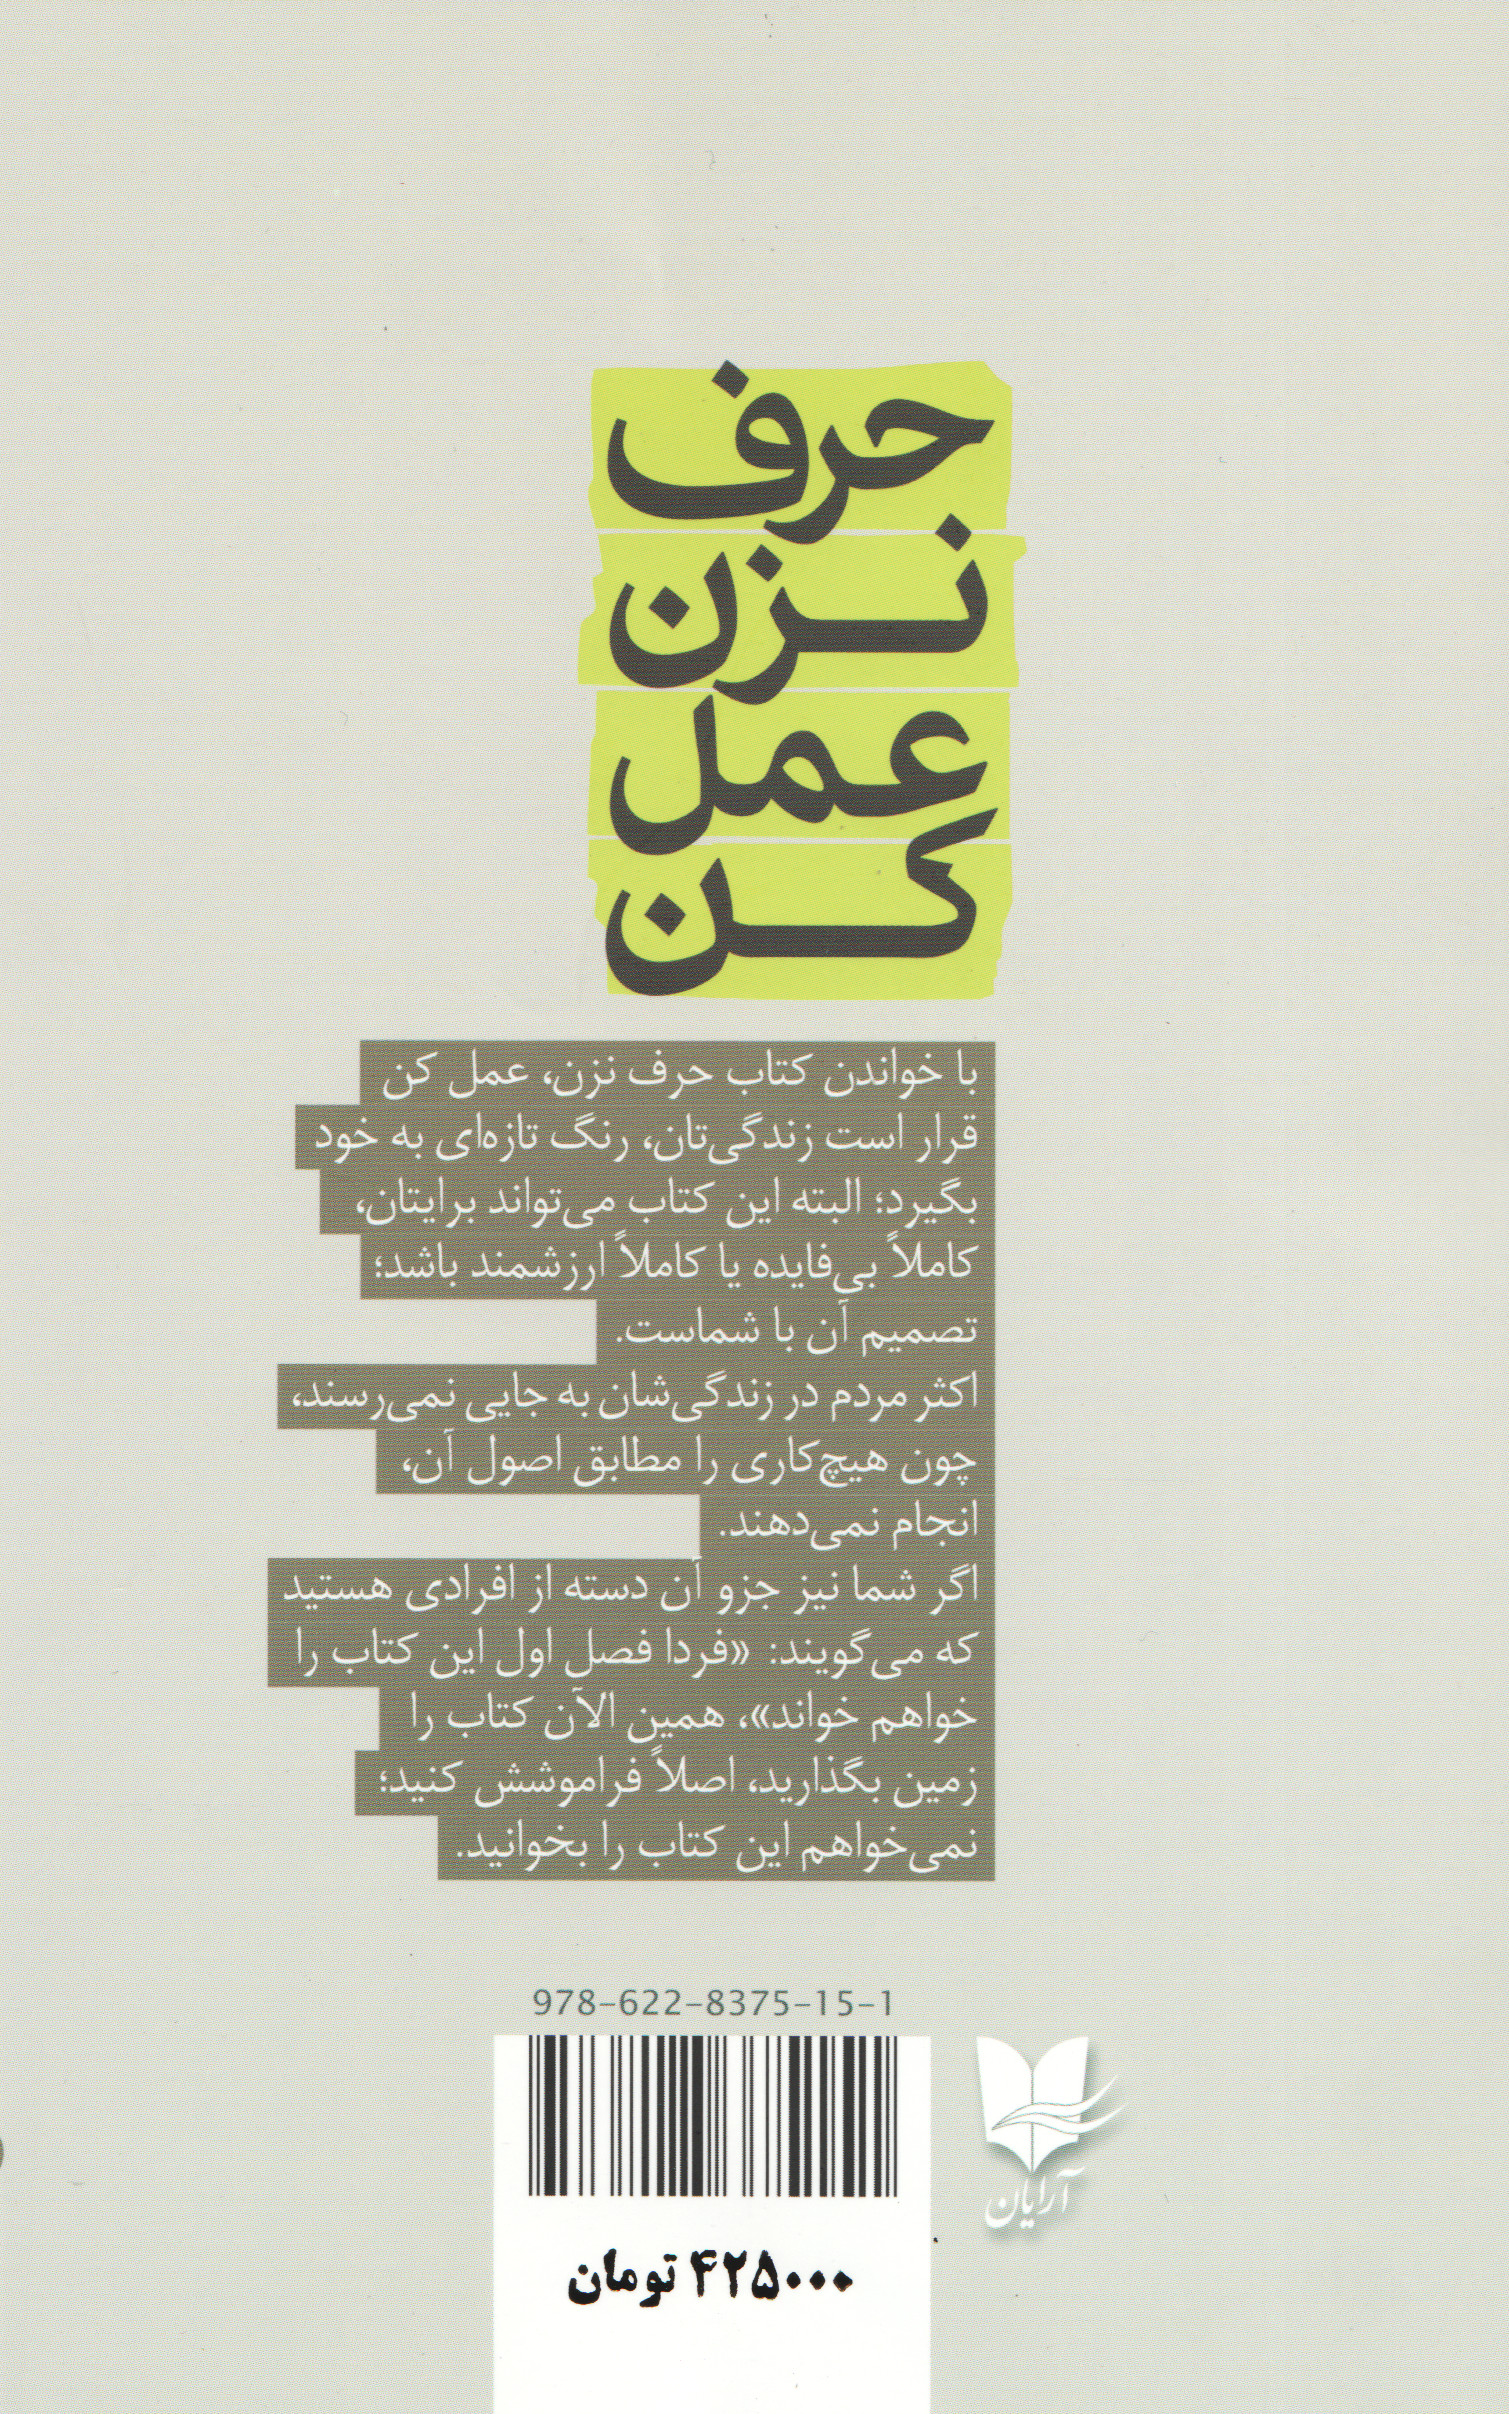 حرف
نزن
عمل
کن
با خواندن کتاب حرف نزن، عمل کن
قرار است زندگی‌تان، رنگ تازه‌ای به خود
بگیرد؛ البته این کتاب می‌تواند برایتان،
کاملاً بی‌فایده یا کاملاً ارزشمند باشد؛
تصمیم آن با شماست.
اکثر مردم در زندگی‌شان به جایی نمی‌رسند،
چون هیچ‌کاری را مطابق اصول آن،
انجام نمی‌دهند.
اگر شما نیز جزو آن دسته از افرادی هستید
که می‌گویند: «فردا فصل اول این کتاب را
خواهم خواند»، همین الآن کتاب را
زمین بگذارید، اصلاً فراموشش کنید؛
نمی‌خواهم این کتاب را بخوانید.
978-622-8375-15-1
آرایان
۴۲۵۰۰۰ تومان